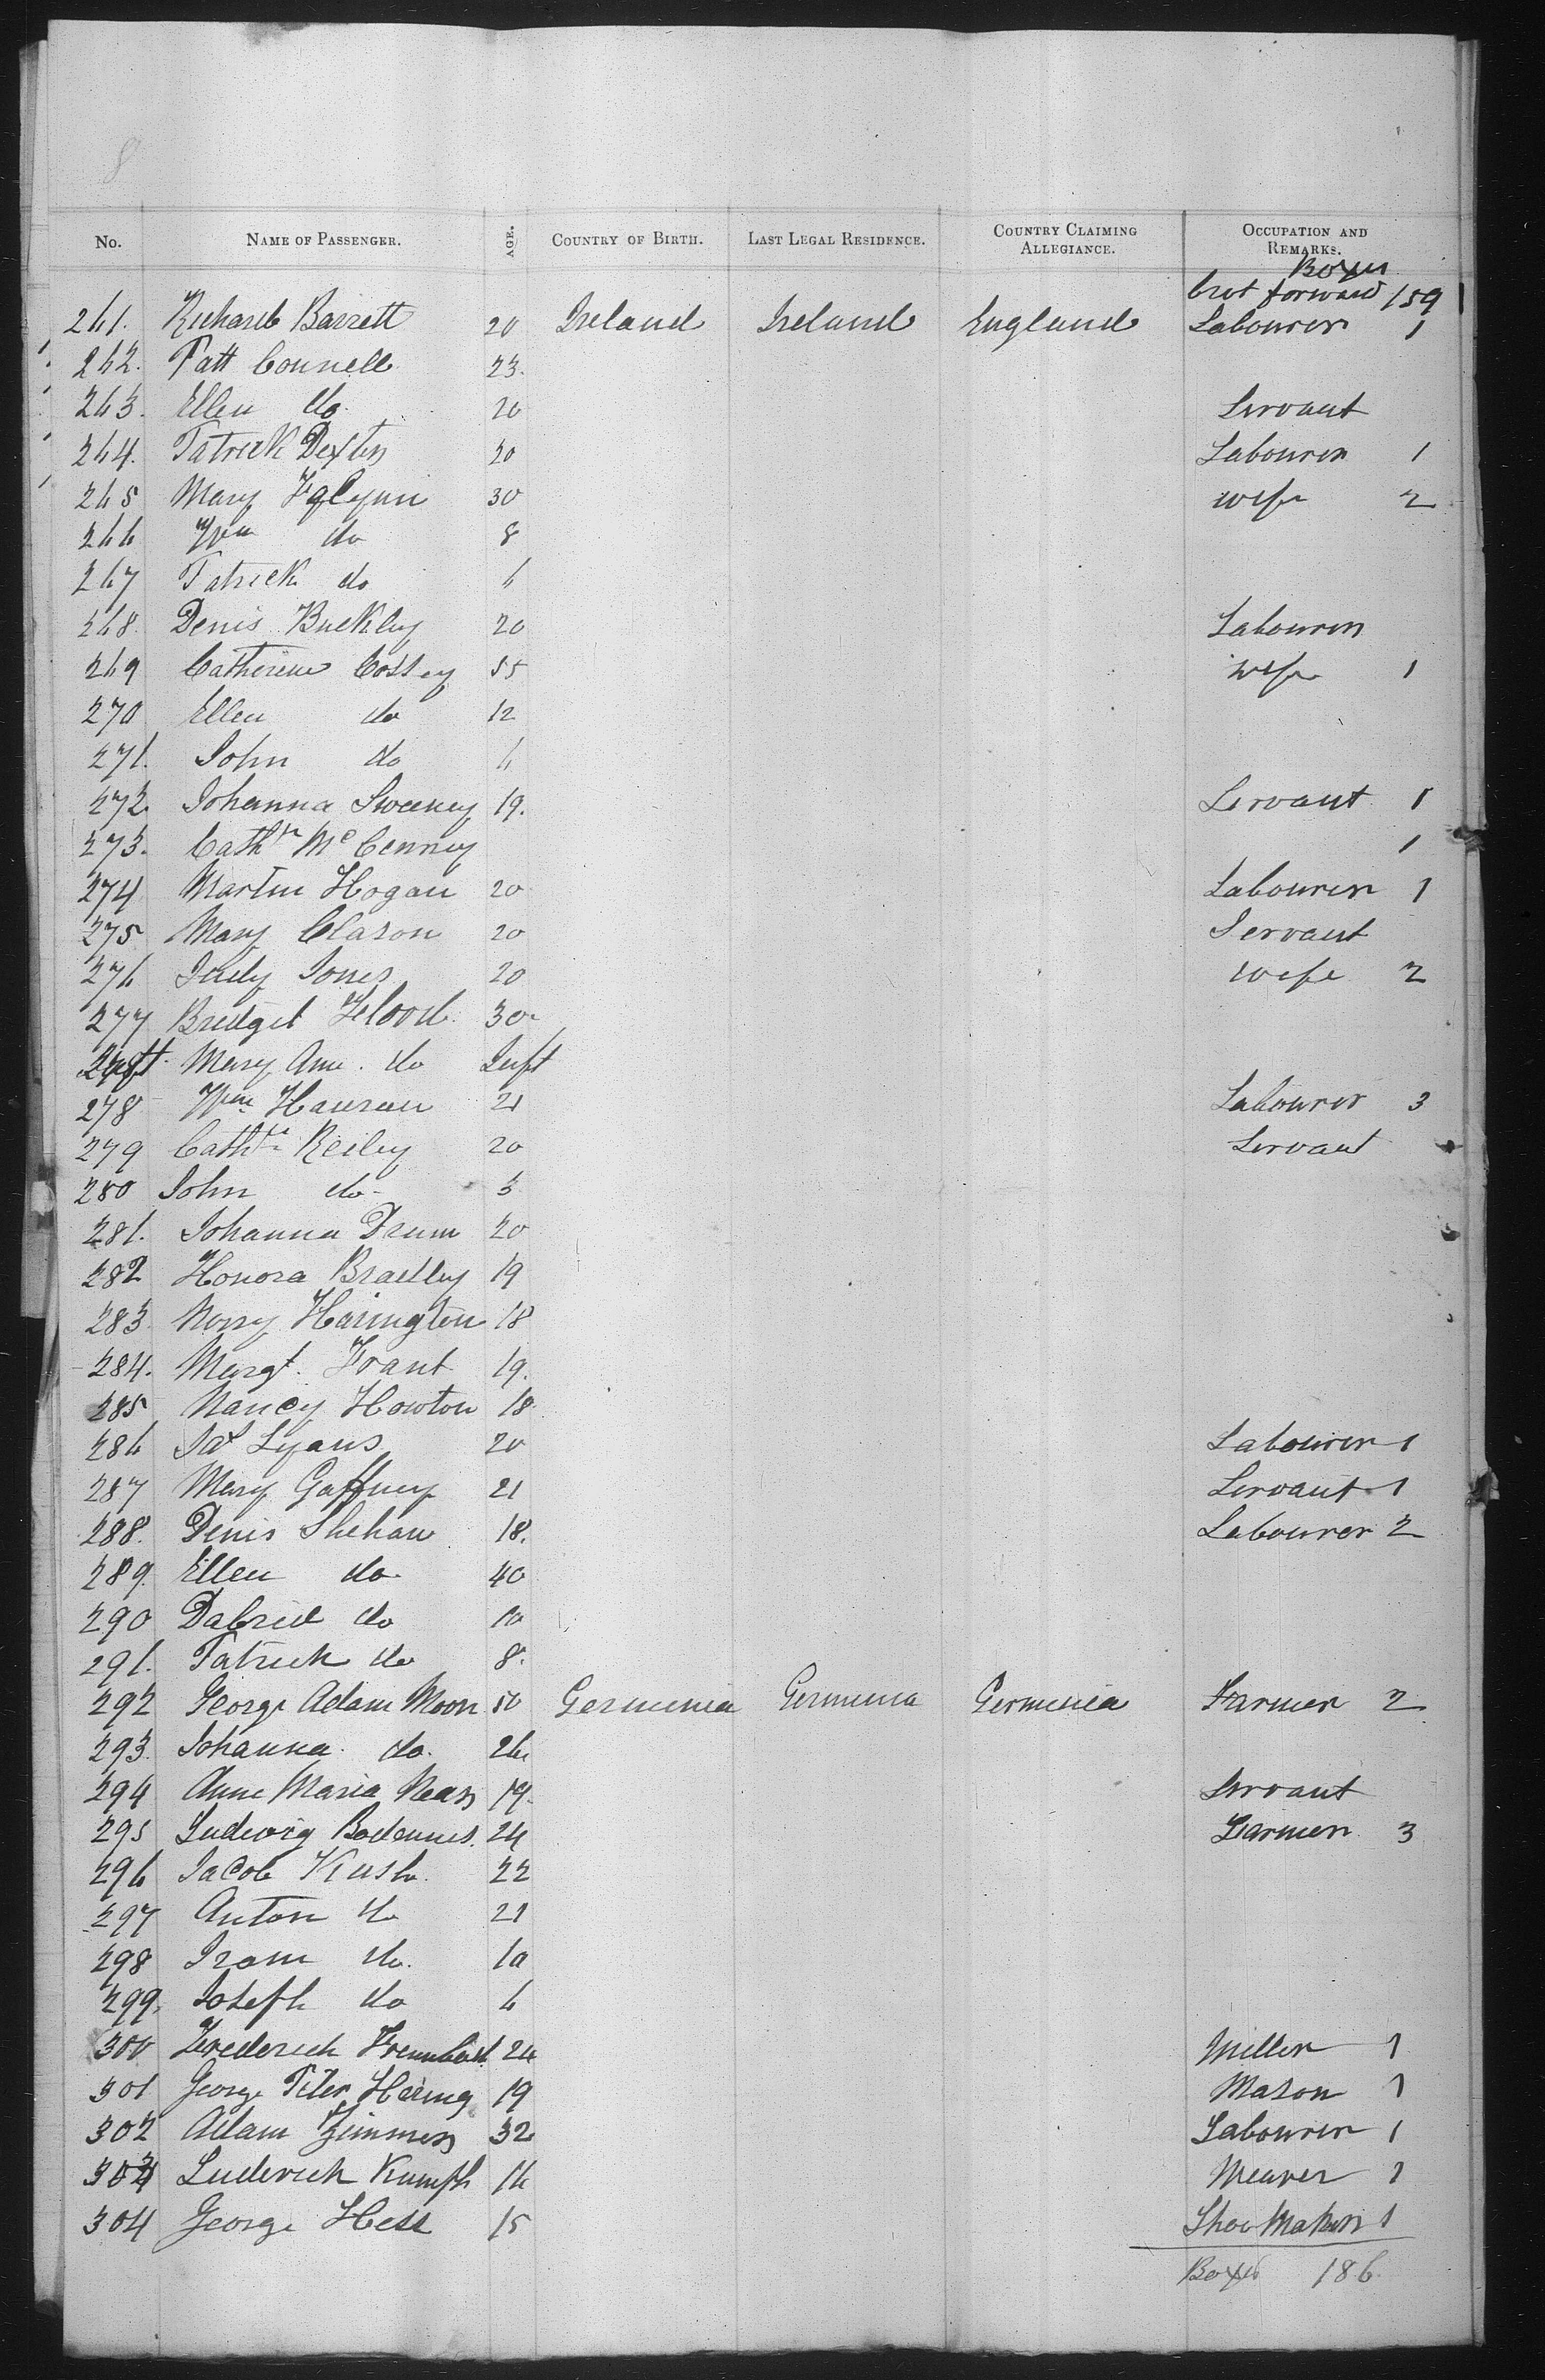 8
No. NAME OF PASSENGER. AGE. COUNTRY OF BIRTH. LAST LEGAL RESIDENCE. COUNTRY CLAIMING ALLEGIANCE. OCCUPATION AND REMARKS.
Boxes
brot forward 159
261. Richard Barrett 20 Ireland Ireland England Labourer 1
262. Patt Connell 23.
263. Ellen do 20 Servant
264. Patrick Dexter 20 Labourer 1
265 Mary Eglynn 30 wife 2
266 Wm do 8
267 Patrick do 6
268 Denis Buckley 20 Labourer
269 Catherine Cossey 55 wife 1
270 Ellen do 12
271. John do 6
272 Johanna Sweeney 19. Servant 1
273. Cath McCenney 1
274 Martin Hogan 20 Labourer 1
275 Mary Clason 20 Servant
276 Judy Jones 20 wife 2
277 Bridget Flood 30
Mary Ann do Inft
278 Wm Hanson 21 Labourer 3
279 Cath Reiley 20 Servant
280 John do 3
281. Johanna Drum 20
282 Honora Bradley 19
283 Norry Harington 18
284. Margt. Frant 19.
285 Nancy Howton 18
286 Jas Lyans 20 Labourer 1
287 Mary Gaffney 21 Servant 1
288. Denis Shehan 18. Labourer 2
289. Ellen do 40
290 Dabried do 10
291. Patrick do 8.
292 George Adam Moon 50 Germenia Germenia Germenia Farmer 2
293. Johanna do. 26
294 Anne Maria Nears 19. Servant
295 Ludewig Bodennes. 24 Farmer 3
296 Jacob Kush 22
297 Anton do 21
298 do. 10
299, Joseph do 6
300 Frederich 24 Miller 1
301 George Peter Hering 19 Mason 1
302 Adam Zimmer 32 Labourer 1
303 Luderich Kumph 16 Weaver 1
304 George Hess 15 Shoe Maker 1
Boxes 186